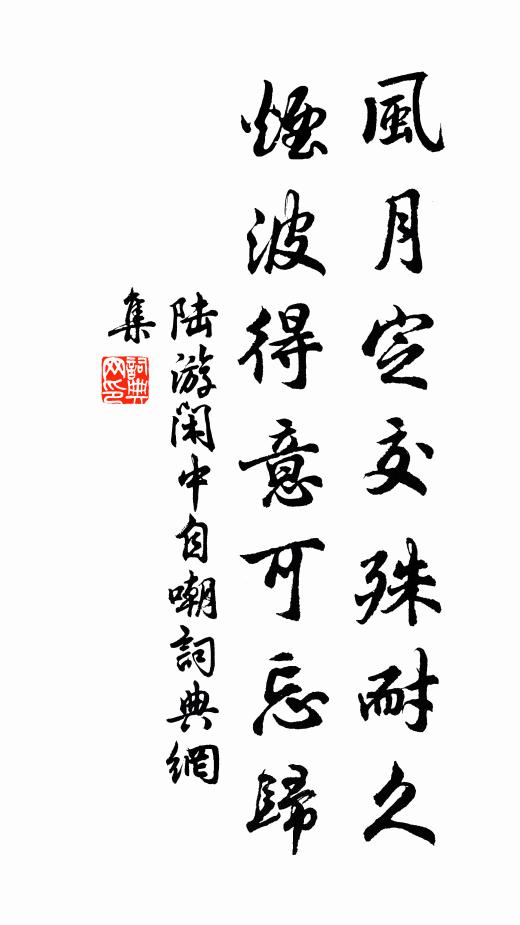 風月定交殊耐久
煙波得意可忘歸
陆游閑中自嘲詞典網
集
詞典
网印